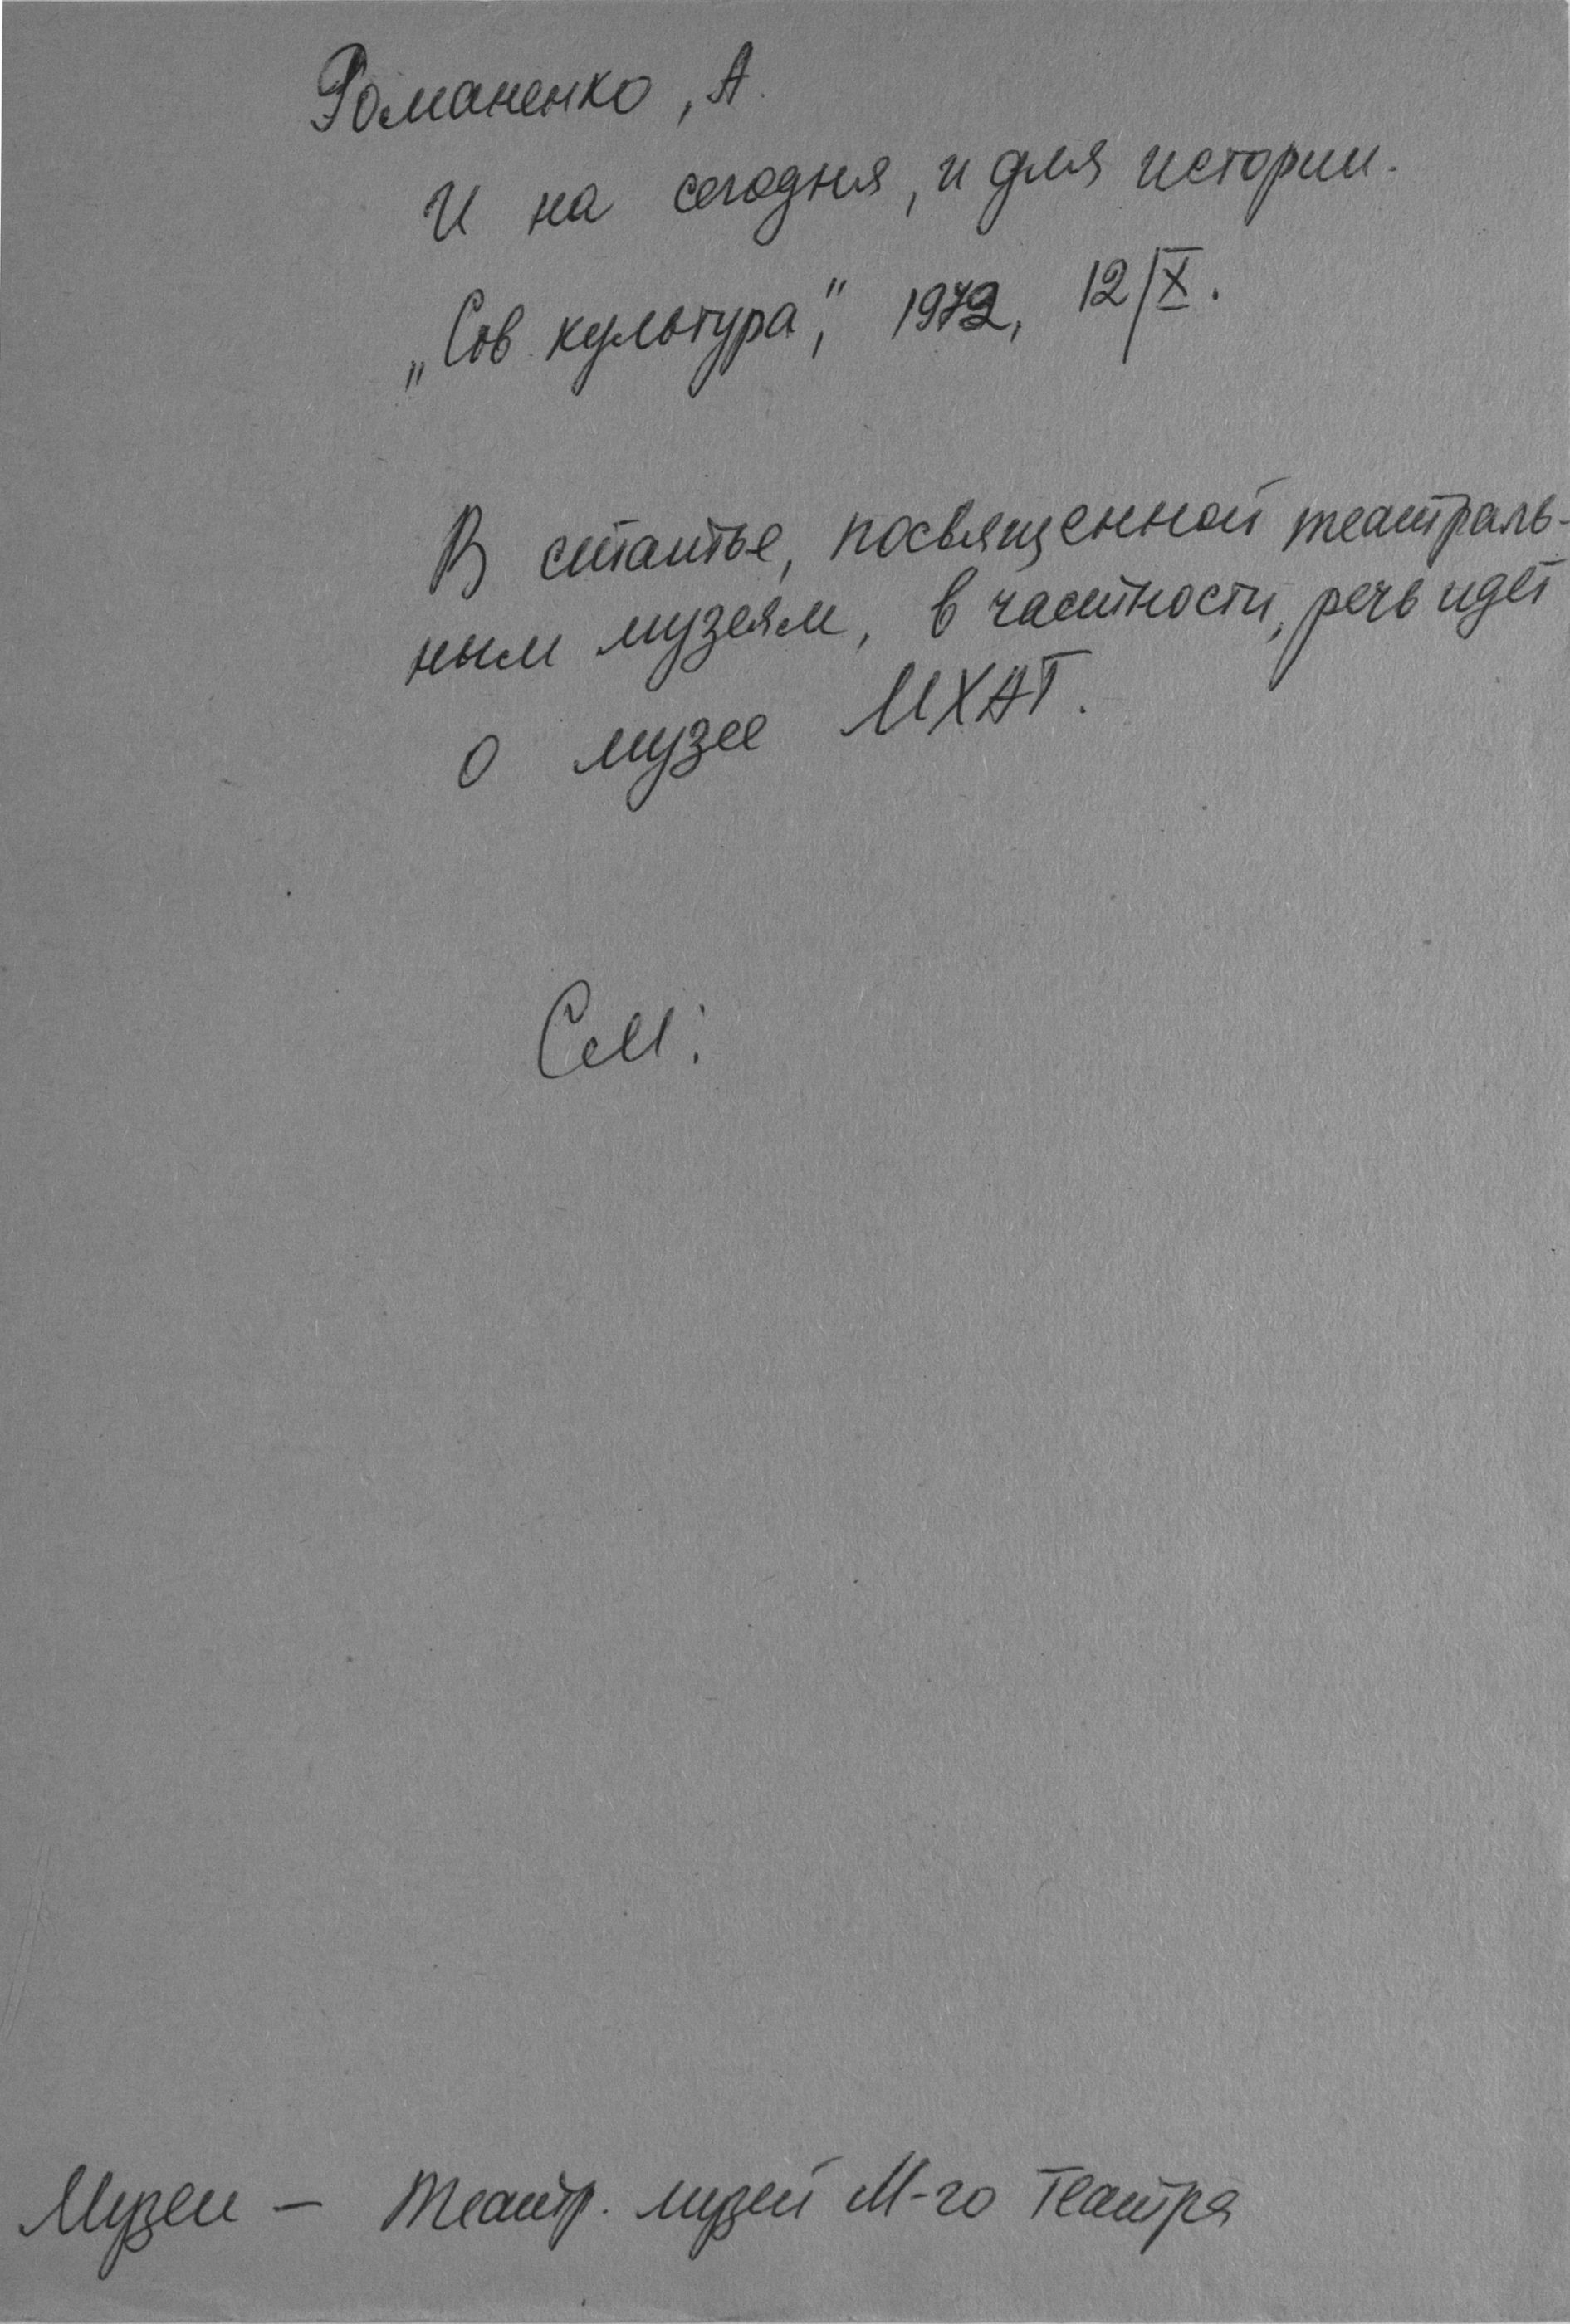 Романенко, А.
И на сегодня, и для истории.
„Сов. культура", 1972, 12/X.
В статье, посвященной театраль-
ным музеям, в частности, речь идёт
о музее МХАТ.
См:
Музеи — Театр. музей М-го театра